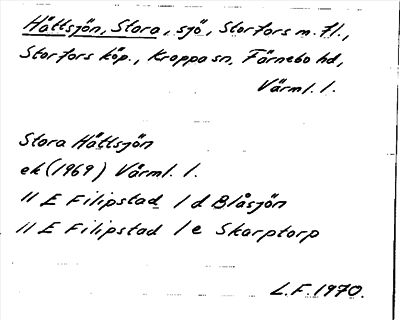 Hättsjön, Stora, sjö, Storfors m. fl.,
Storfors köp., Kroppa sn, Färnebo hd,
Värml. l.
Stora Hättsjön
ek (1969) Värml. l.
11 E Filipstad 1 d Blåsjön
11 E Filipstad 1 e Skarptorp
L.F. 1970.